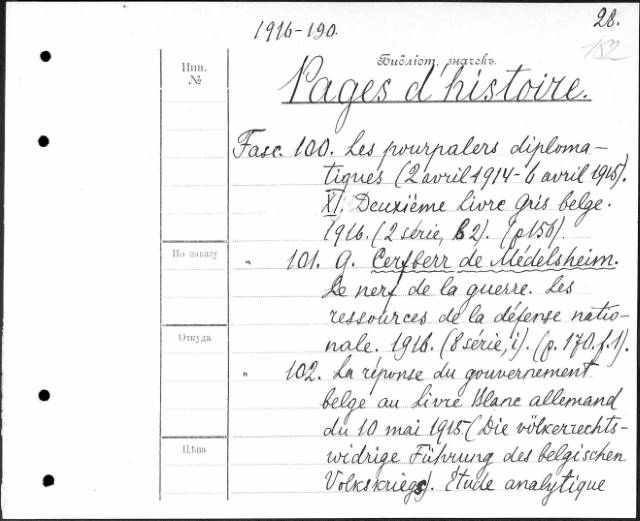 1916-190.
28.
152
Библіот. значекъ.
Инв.
№
Pages d'histoire.
Fasc. 100. Les pourpalers diploma-
tiques (2 avril 1914-6 avril 1915).
XI. Deuxième Livre Gris belge.
1916. (2 série, B2). (p156).
По заказу
" 101. G. Cerfberr de Médelsheim.
Le nerf de la guerre. Les
ressources de la défense natio-
Откуда
nale. 1916. (8 série, i). (p. 170. f. 1).
" 102. La réponse du gouvernement
belge au Livre Blanc allemand
du 10 mai 1915. (Die völkerrechts-
Цѣна
widrige Führung des belgischen
Volkskriegs). Étude analytique